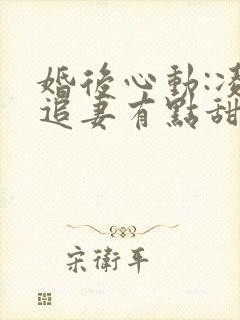 婚後心動:凌
追妻有點甜
宋衛平